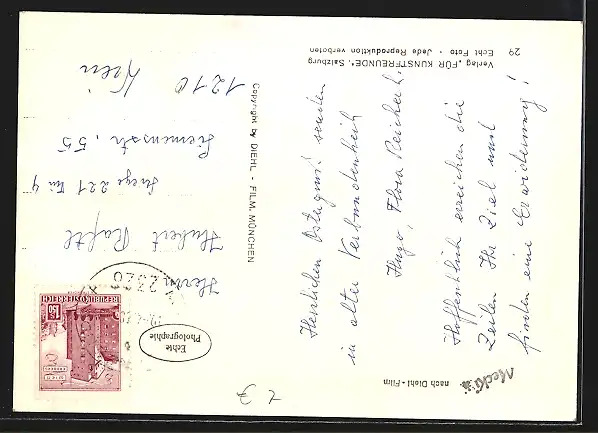 Verlag „FÜR KUNSTFREUNDE“, Salzburg
29 Echt Foto · Jede Reproduktion verboten
Herzlichen Ostergruß senden
in alter Verbundenheit
Hugo, Flora Reichert.
Hoffentlich erreichen die
Zeilen Ihr Ziel und
finden eine Erwiderung!
nach Diehl-Film
Mecki
Copyright by DIEHL - FILM, MÜNCHEN
Echte
Photographie
REPUBLIK ÖSTERREICH
1.50 S
2326
Herrn
Hubert
Siemensstr. 55
1210 Wien